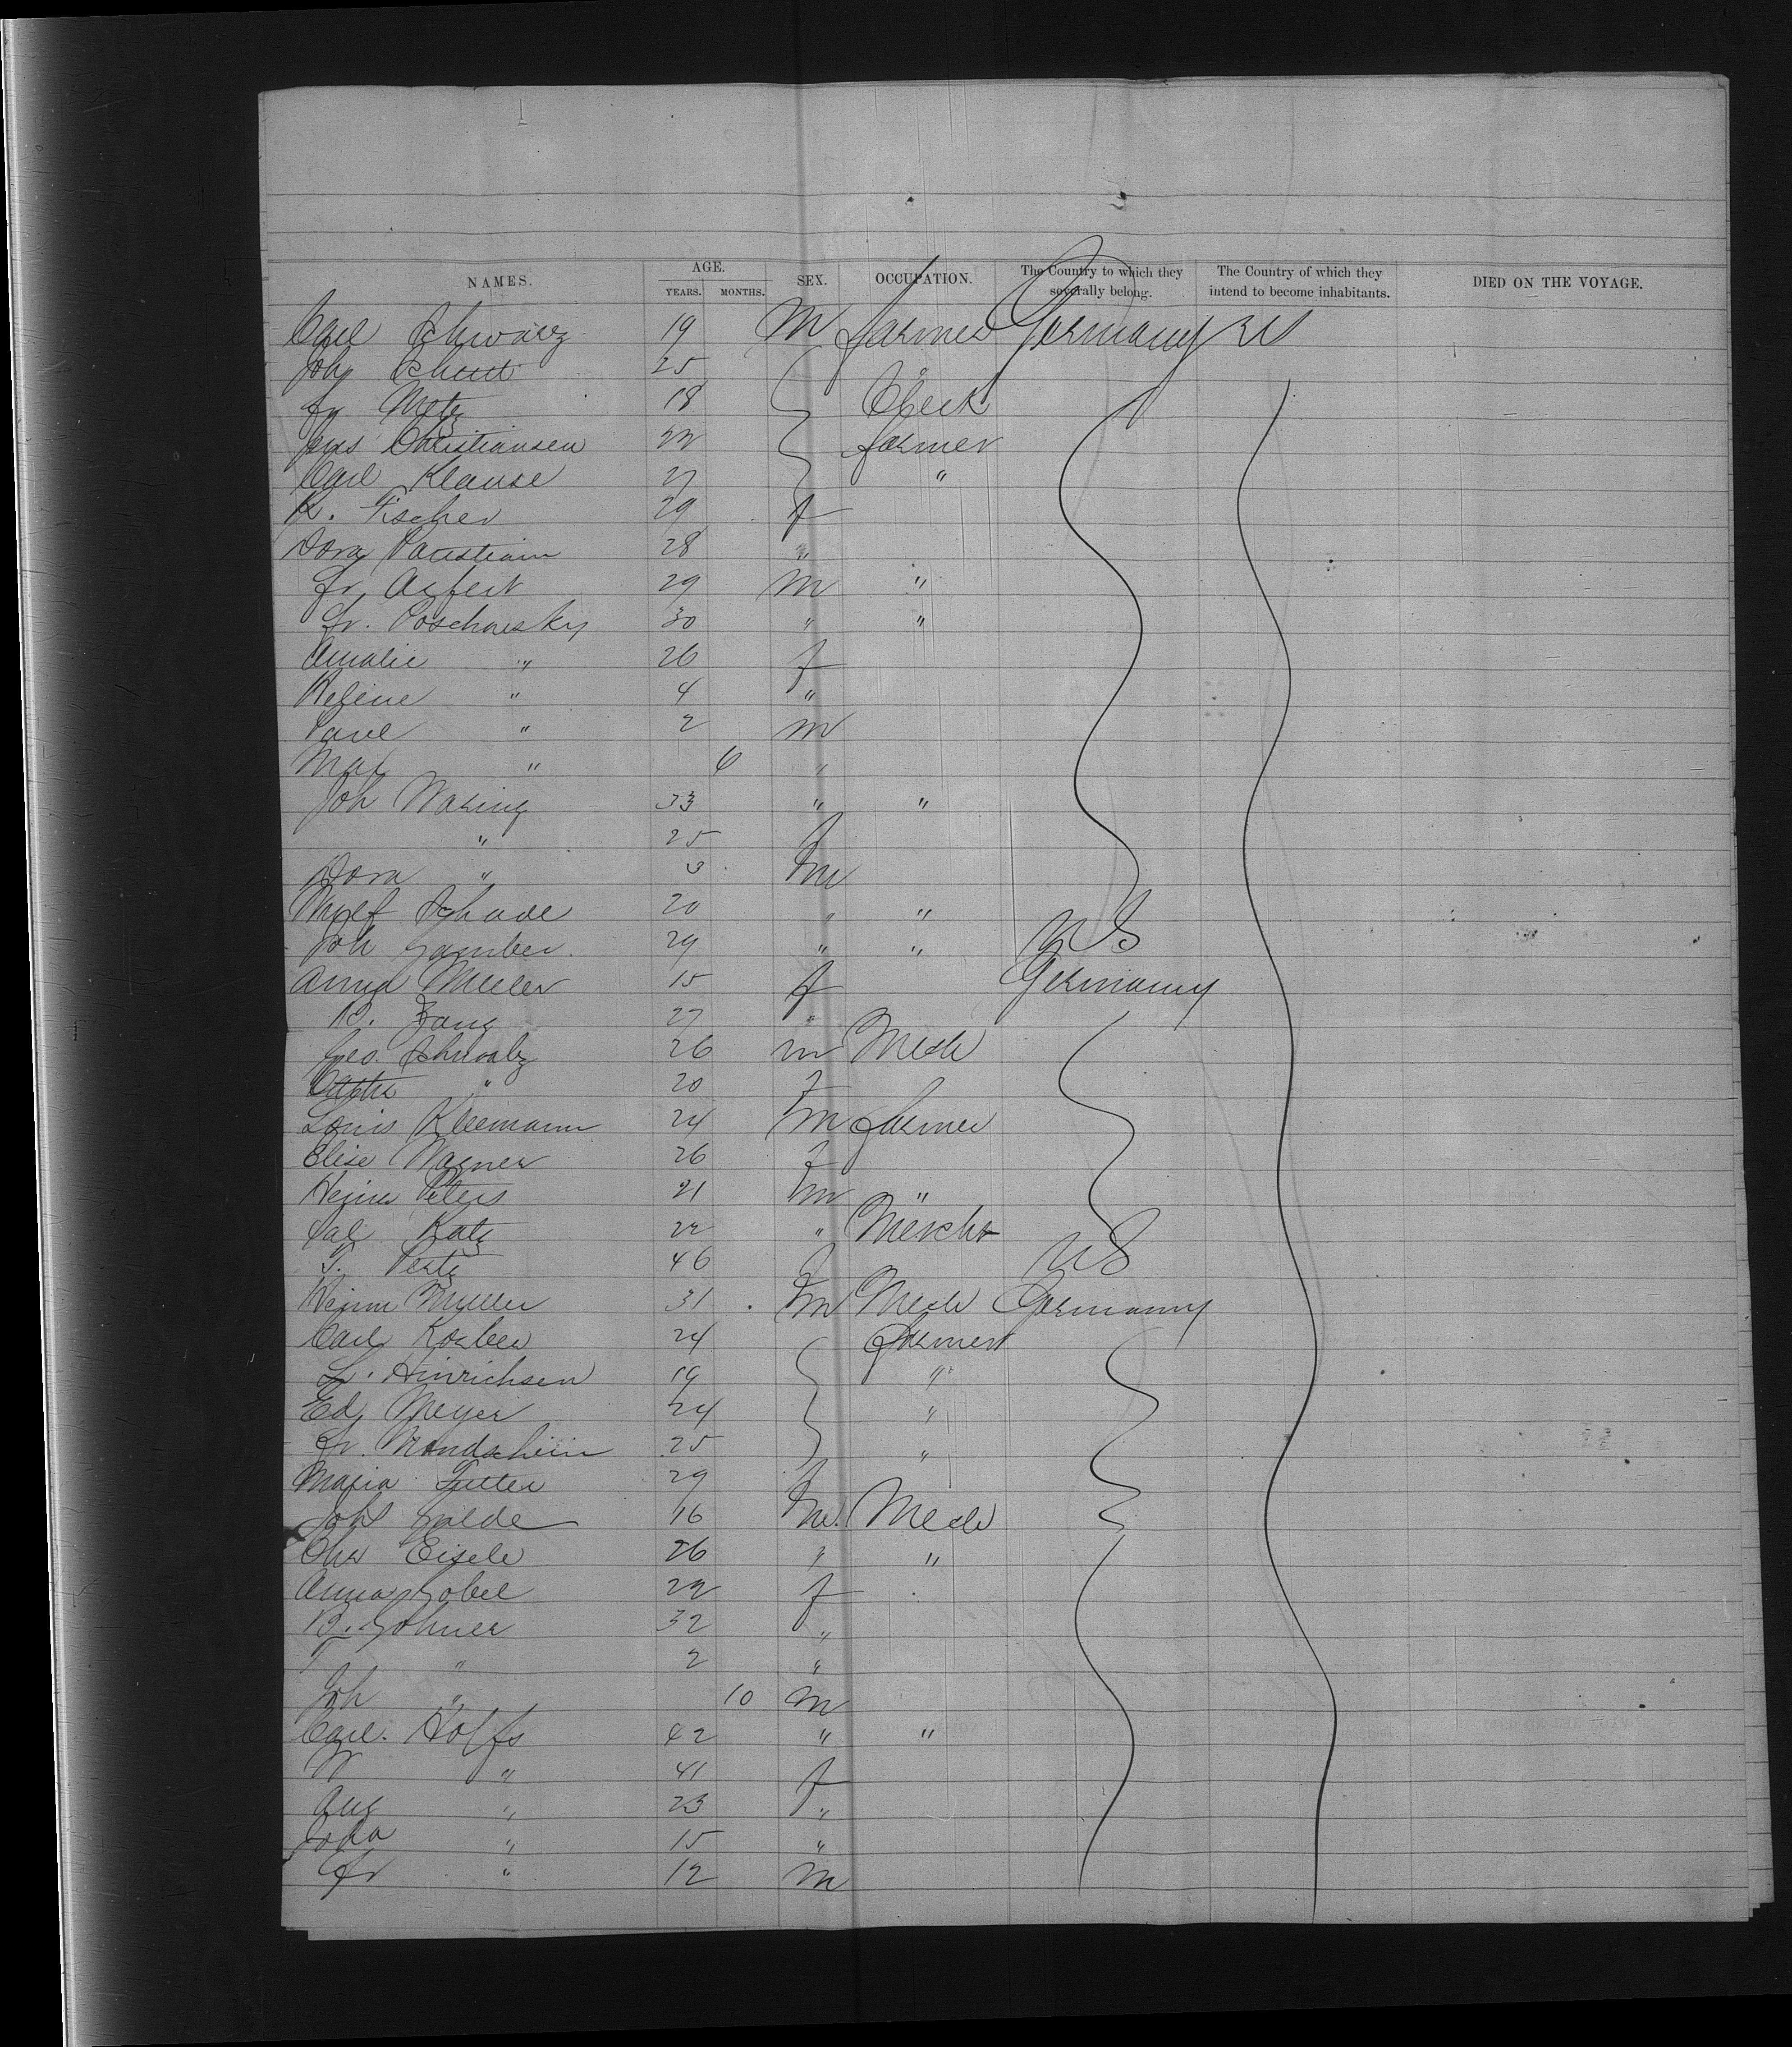 NAMES. AGE. YEARS. MONTHS. SEX. OCCUPATION. The Country to which they severally belong. The Country of which they intend to become inhabitants. DIED ON THE VOYAGE.
Carl Schwarz 19 M farmer Germany US
Joh Schutt 25 "
Fr Metz 18 Clerk
Jens Christiansen 22 farmer
Carl Klause 27 "
K. Fischer 29 f
Dora Paustian 28 "
Fr. 29 M "
Fr. Poschwsky 30 " "
Amalie " 26 f
Helene " 4 "
Paul " 2 M
Max " 6 "
Joh Waking 33 " "
" 25 f
Dora " 3 M
Schade 20 " "
Joh Gamber 29 " " US
Anna Muller 15 f Germany
B. Zang 27 "
Geo. Schwalz 26 M Mech
" 20 f
Louis Kleemann 24 M farmer
Elise Wagner 26 f
Heinr Peters 21 M "
Sal Katz 22 " Mercht
T. Pertz 46 f US
Heinr Muller 31 M Mech Germany
Carl Korber 24 farmer
L. Hinrichsen 19 "
Ed. Meyer 24 "
Fr. Mondschein 25 "
Maria Futter 29 f
Joh Galde 16 M. Mech
Chr Eisele 26 " "
Anna Gobel 22 f
B. Gohner 32 "
T " 2 "
Joh " 10 M
Carl Holffs 42 " "
W " 41 f
Aug " 23 "
Joha " 15 "
Fr " 12 M